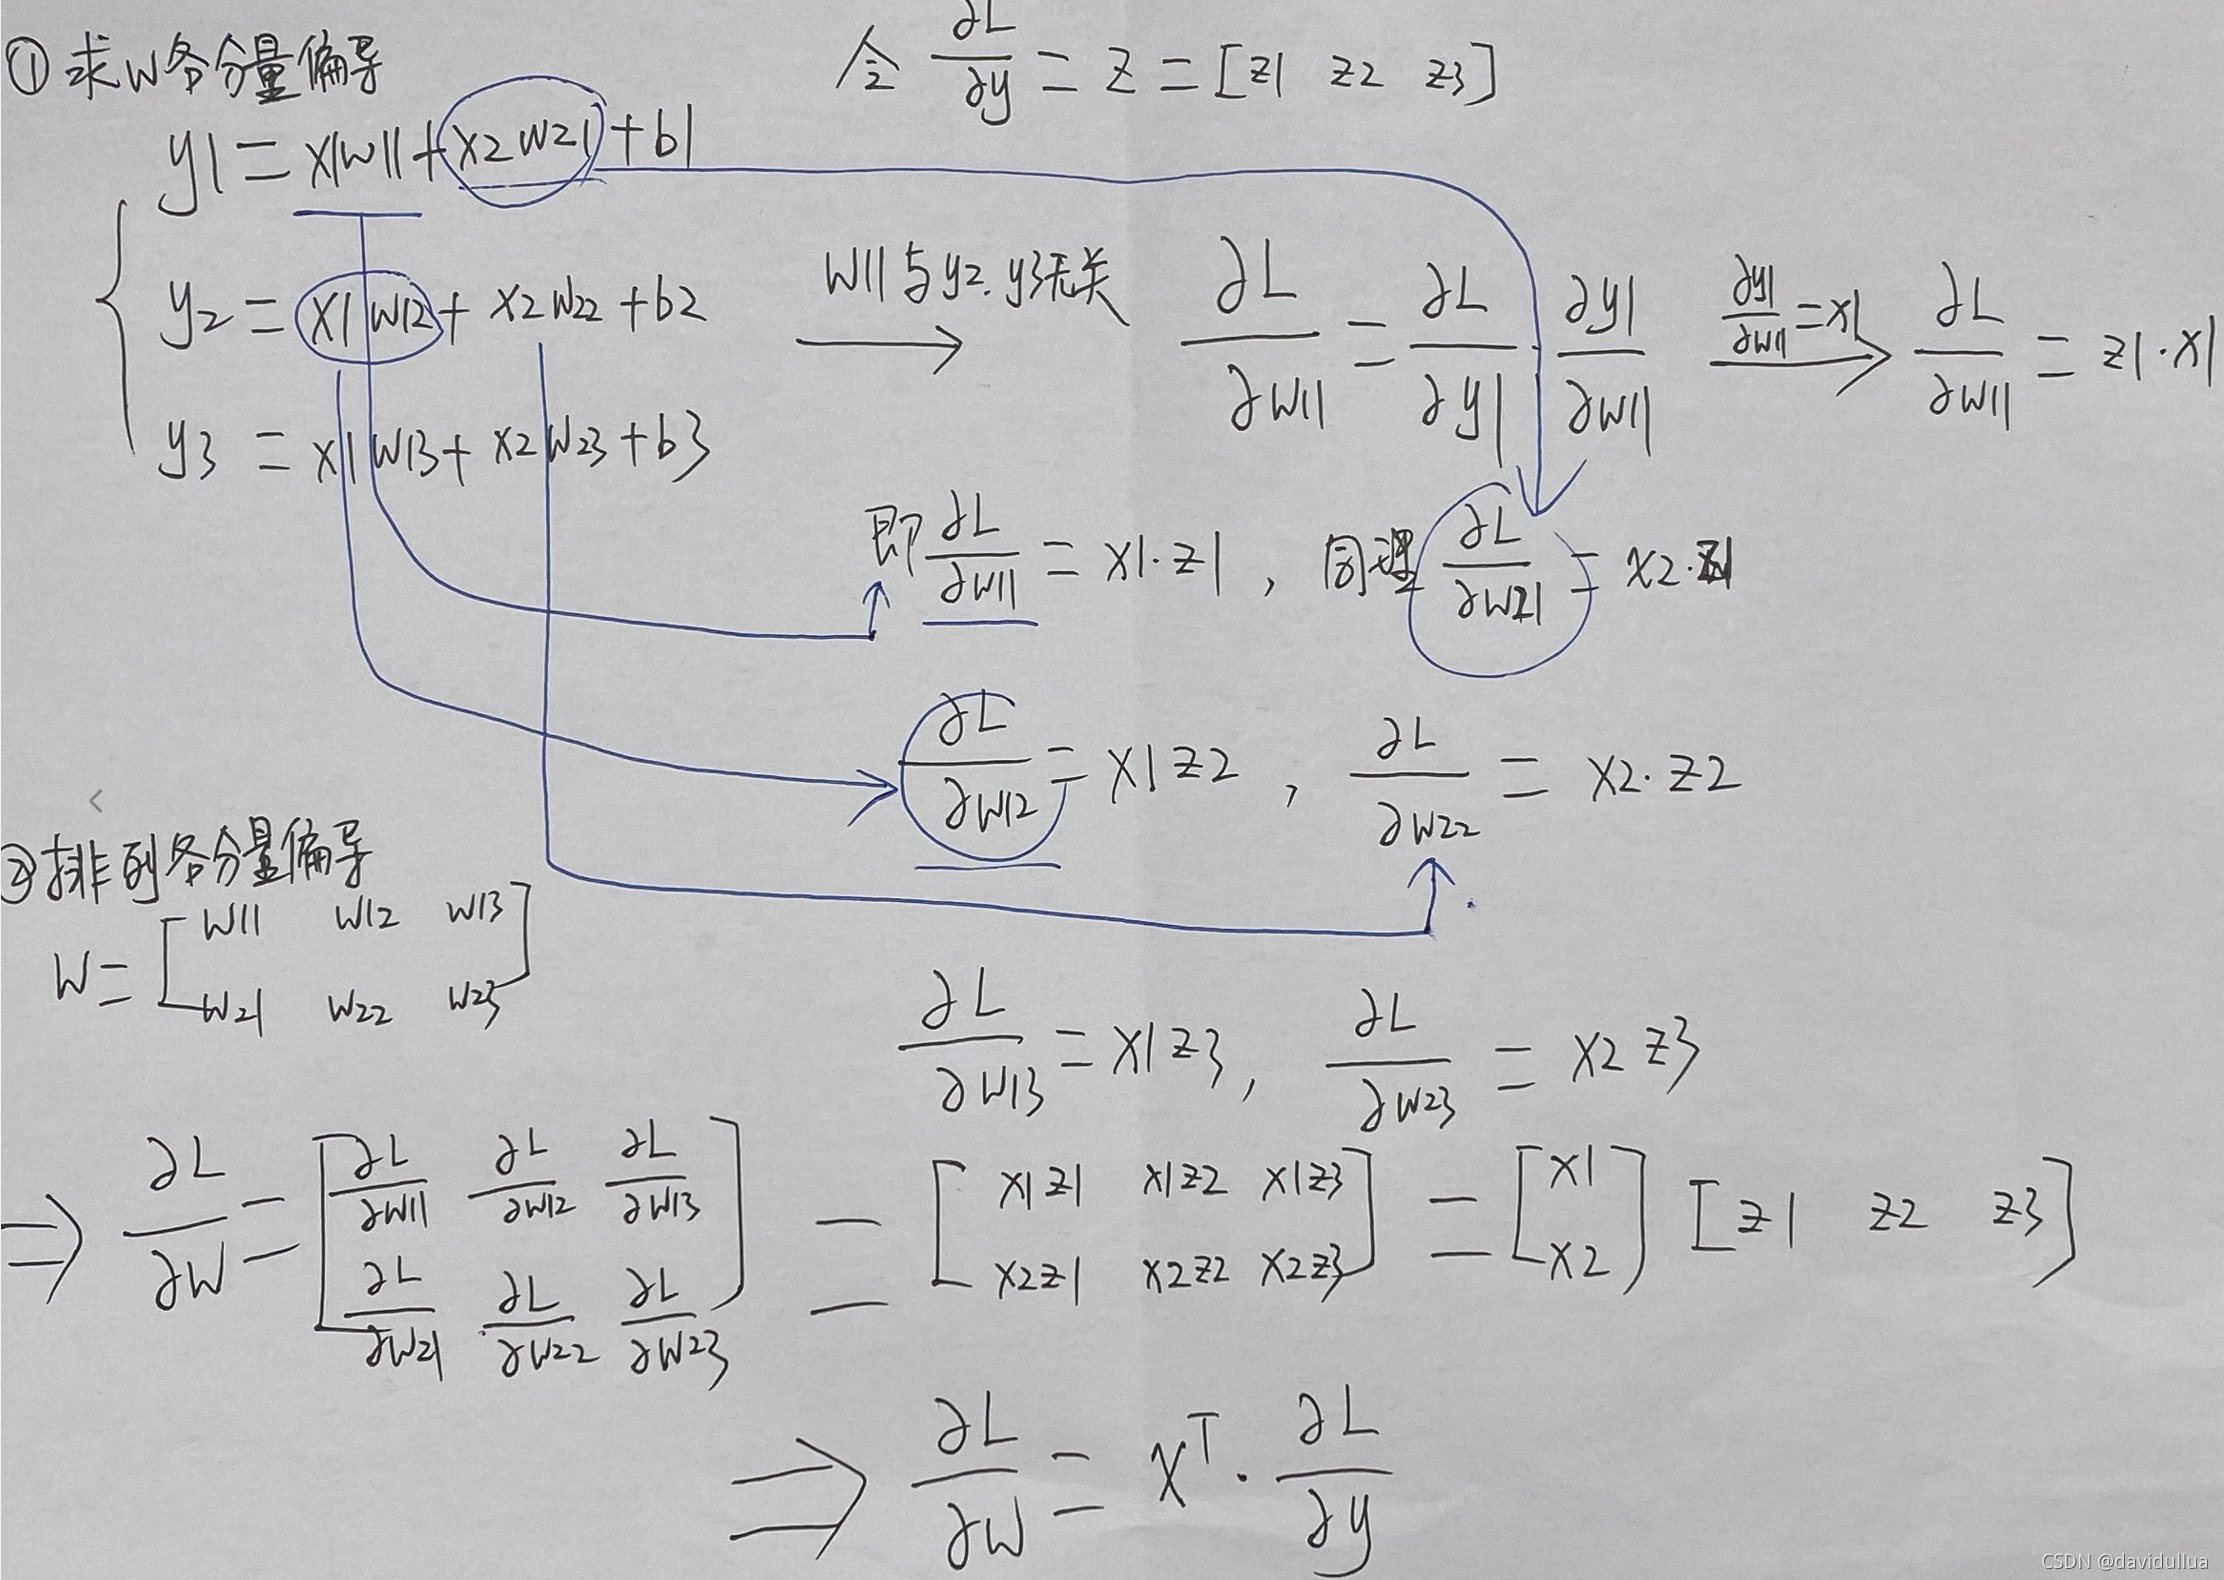 ①求W各分量偏导
令 ∂L/∂y = Z = [z1 z2 z3]
y1 = x1w11 + x2w21 + b1
y2 = x1w12 + x2w22 + b2
w11与y2.y3无关 ⟶ ∂L/∂w11 = ∂L/∂y1 ∂y1/∂w11
∂y1/∂w11 = x1 ⟶ ∂L/∂w11 = z1·x1
y3 = x1w13 + x2w23 + b3
即 ∂L/∂w11 = x1·z1 , 同理 ∂L/∂w21 = x2·z1
∂L/∂w12 = x1z2 , ∂L/∂w22 = x2·z2
②排列各分量偏导
W = [w11 w12 w13
w21 w22 w23]
∂L/∂w13 = x1z3 , ∂L/∂w23 = x2z3
⇒ ∂L/∂W = [∂L/∂w11 ∂L/∂w12 ∂L/∂w13
∂L/∂w21 ∂L/∂w22 ∂L/∂w23]
= [x1z1 x1z2 x1z3
x2z1 x2z2 x2z3]
= [x1
x2] [z1 z2 z3]
⇒ ∂L/∂W = X^T · ∂L/∂y
CSDN @davidullua